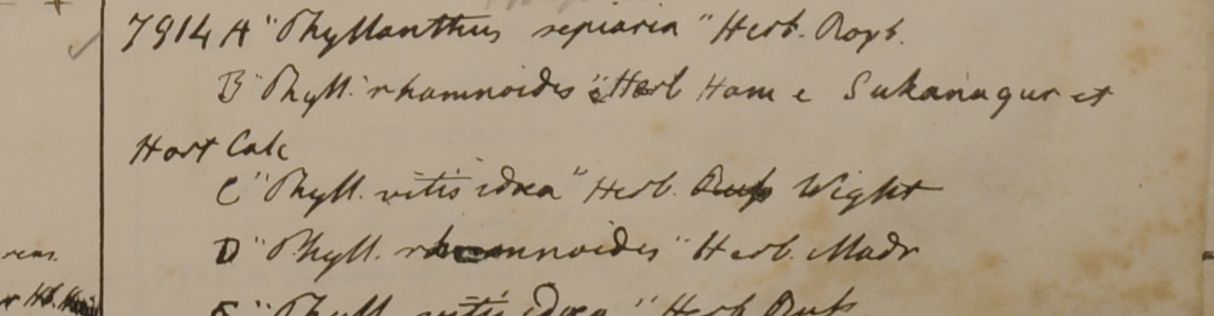 7914 A "Phyllanthus sepiaria" Herb. Roxb.
B "Phyll. rhamnoides" Herb Ham e Sukanagur et
Hort Calc
C "Phyll. vitis idæa" Herb. Wight
D "Phyll. rhamnoides" Herb. Madr
reus.
E "Phyll vitis idæa" Herb Russ